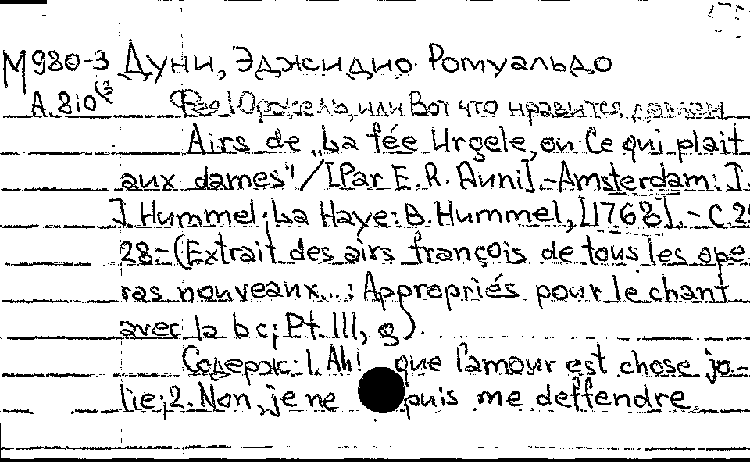 М980-3 Дуни, Эджидио Ромуальдо
А.810(3 Фея Юржель, или Вот что нравится дамам
Airs de „La fée Urgele, ou Ce qui plait
aux dames"/[Par E. R. Duni].-Amsterdam: J.
J. Hummel; La Haye: B. Hummel, [1768].- C.
28-(Extrait des airs françois de tous les ope-
ras nouveaux...; Appropriés pour le chant
avec la bc; Pt. III,
Содерж.: 1. Ah! que l'amour est chose jo-
lie; 2. Non, je ne puis me deffendre